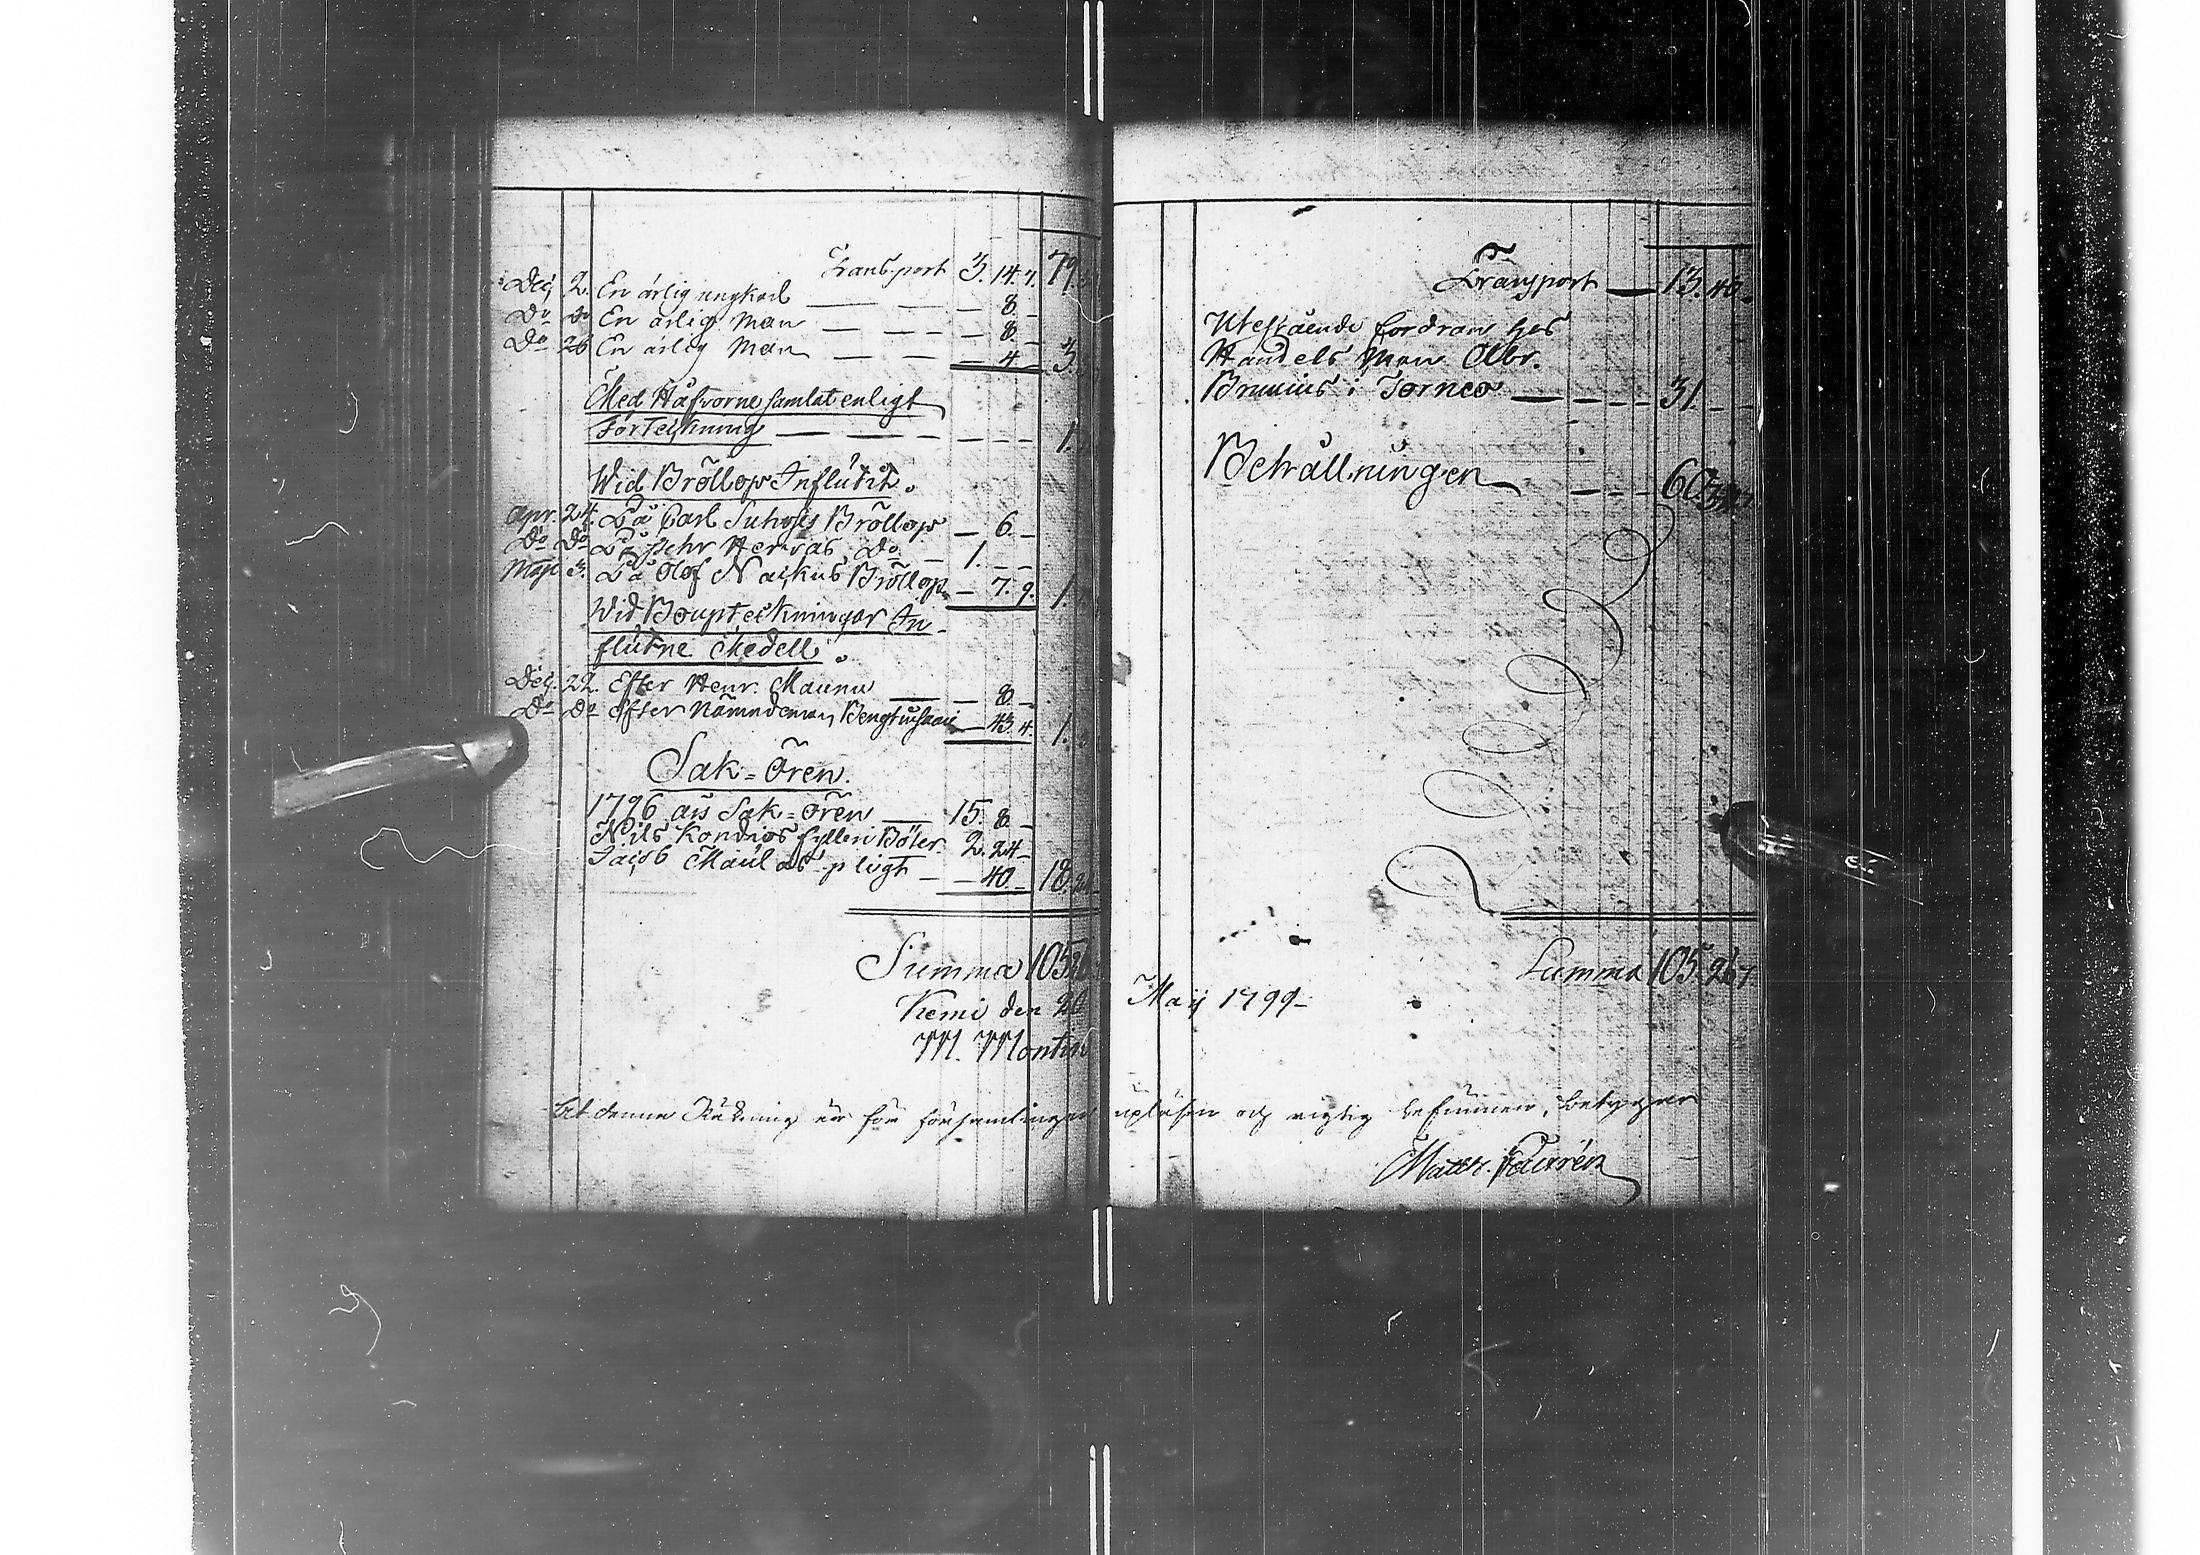 Transport 3. 14. 7. 79.
Decj 2. En ärlig ungkarl — — — 8. –
Do Do En ärlig Man — — — 8. –
Do 26 En ärlig Man — — — 4 – 3.
Med Håfvorne samlat enligt
Förteckning — — — — — 1.
Wid Bröllop Influtit.
Apr. 24. På Carl Suhojis Bröllop — 6. –
Do Do På Pehr Hervas Do – 1. – –
Maji 3. På Olof Naskus Bröllop – 7. 9. 1.
Wid Boupteckningar In-
flutne Medell
Decj. 22. Efter Henr. Maunu — — 8. –
Do Do Efter Nämndeman — 43. 4. 1.
Sak=Ören.
1796 ars Sak=Ören — 15. 8. –
Nils Kondios fylleri Böter 2. 24 –
Jacob Maulas pligt – – 40. – 18.
Summa 105.
Kemi den 20
M.
Transport — 13. 40. –
Utestående fordran hos
Handels Man Abr.
Brunius i Torneo — — — – 31. – –
Behållningen — – – 60.
Summa 105. 26. 7.
Maij 1799–
At denna Räkning är för församlingen upläsen och rigtig befunnen, betygar
Matth.